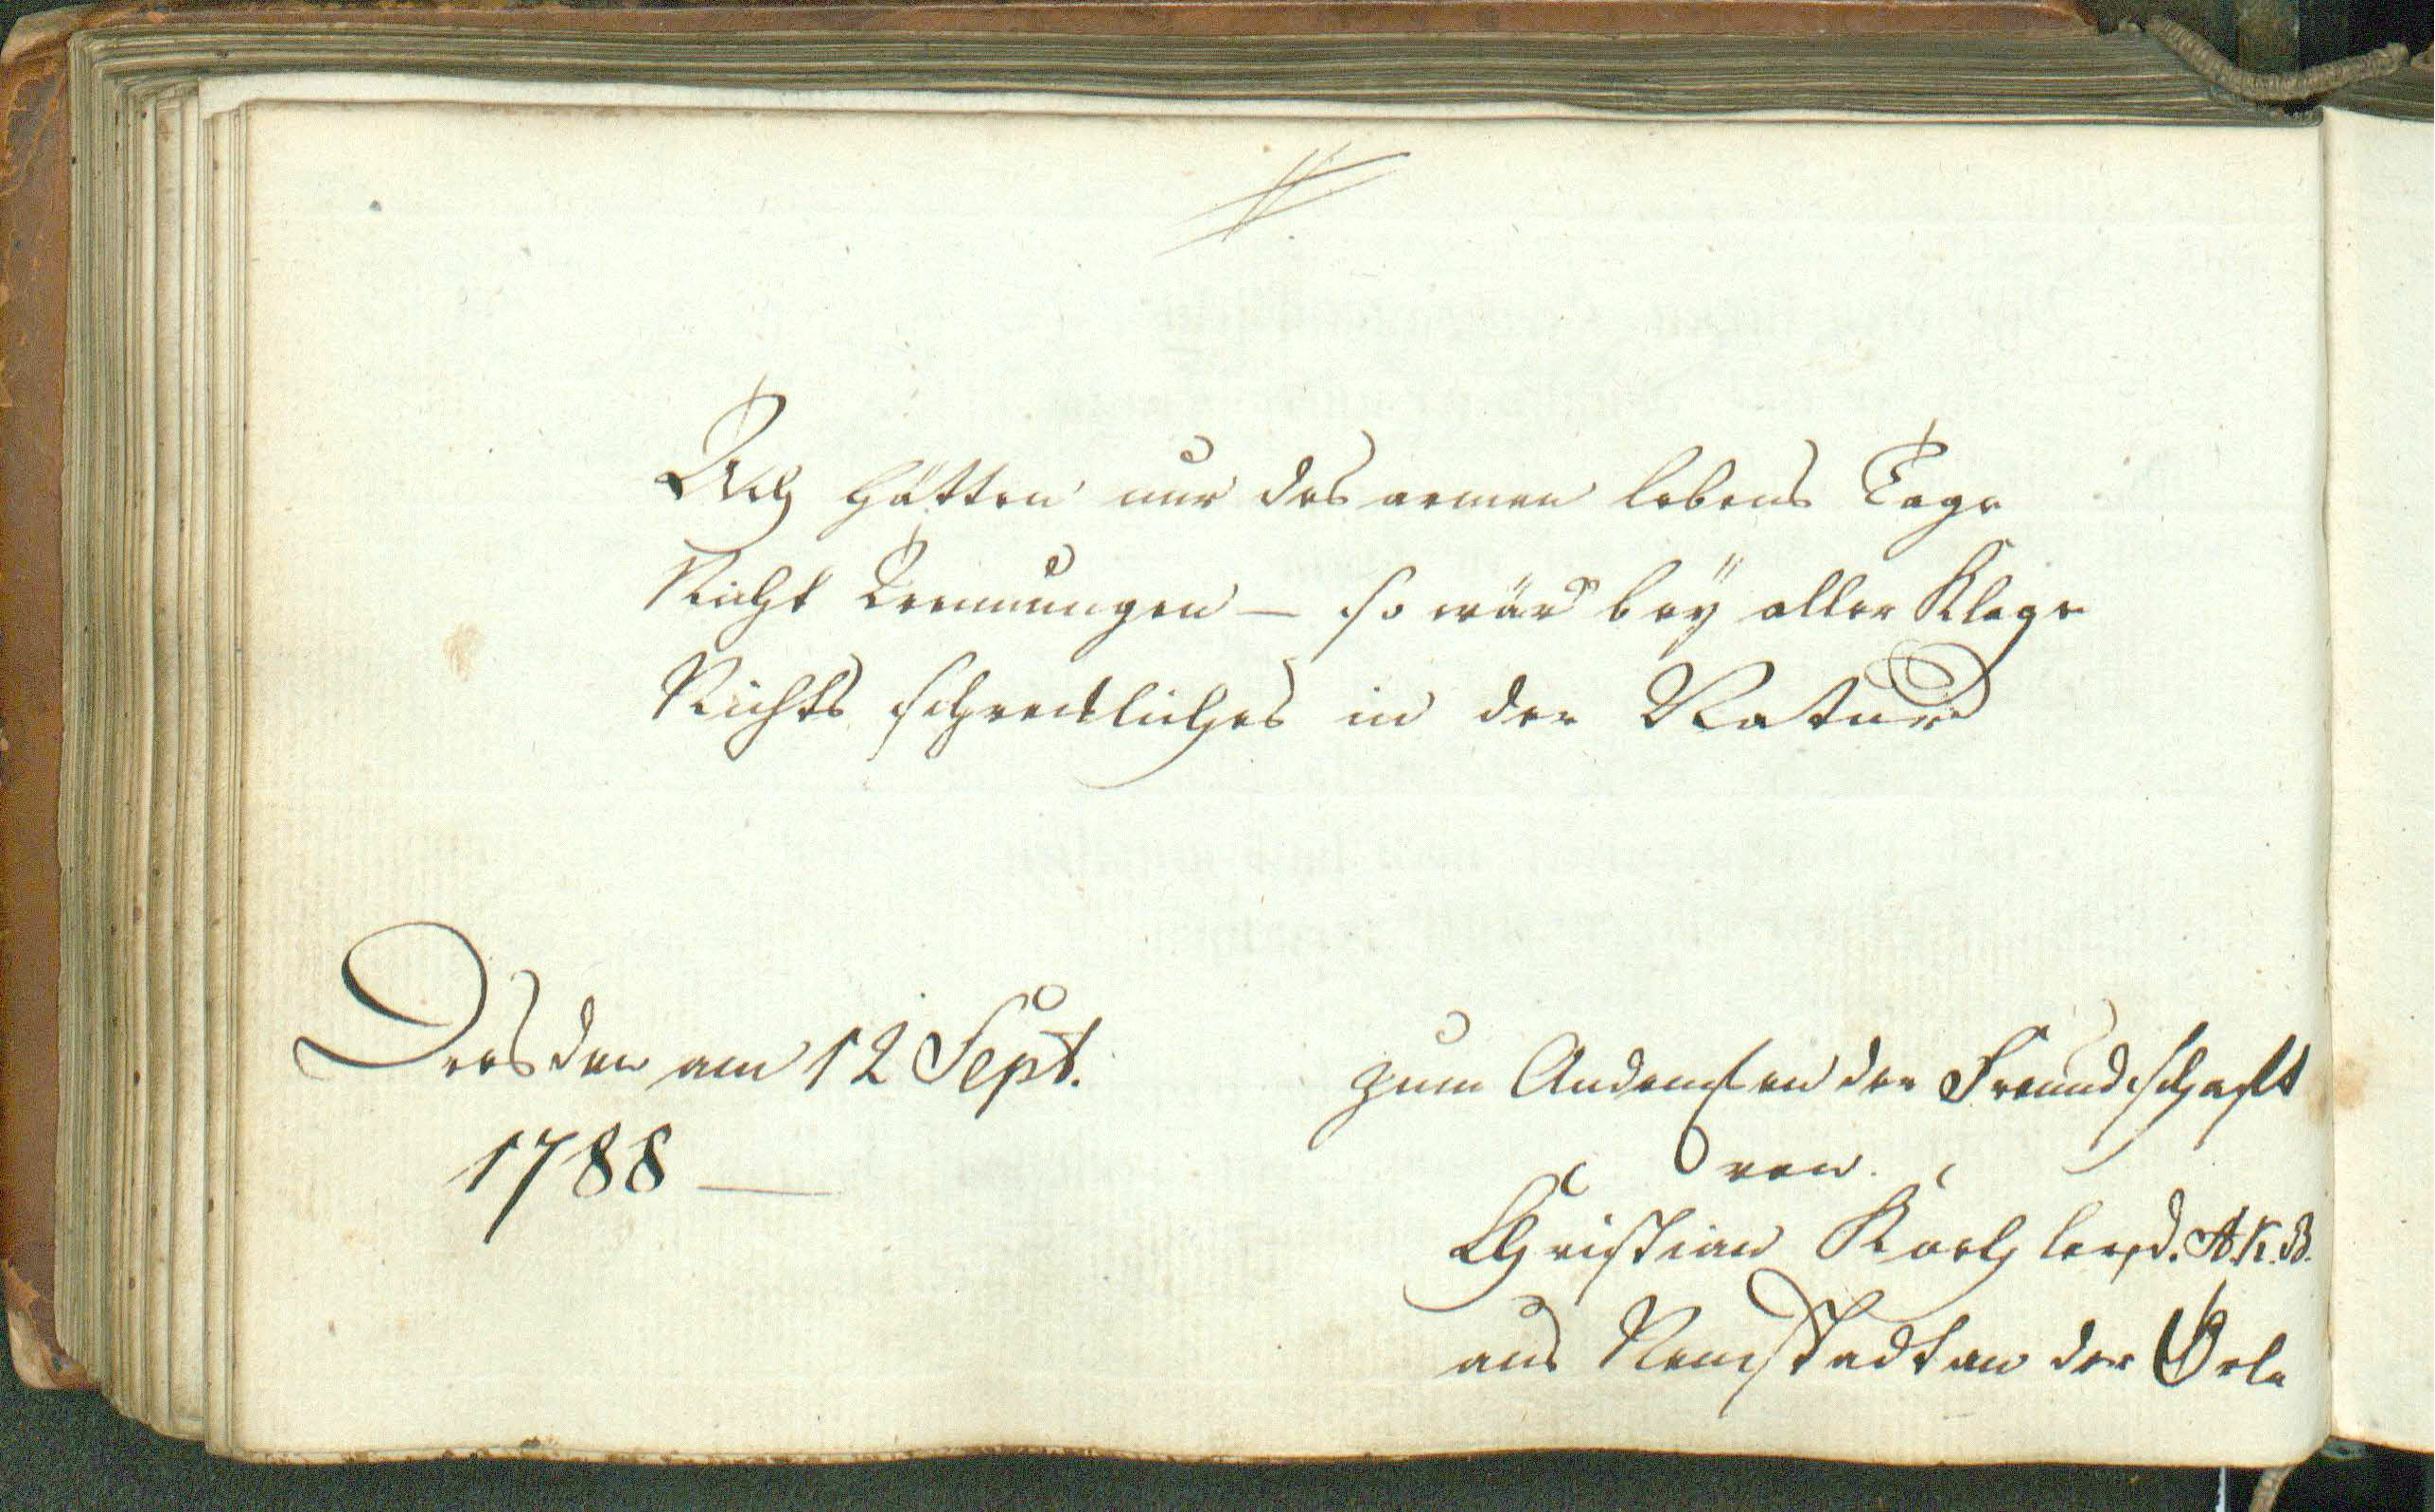 Ach hätten nur des armen lebens Tage
Nicht Trennungen — so wär bey aller Klage
Nichts schrecklicher in der Natur
Dresden am 12 Sept.
1788 —
zum Andenken der Freundschaft
von.
Christian A.K.B.
aus Neustadt an der Orla